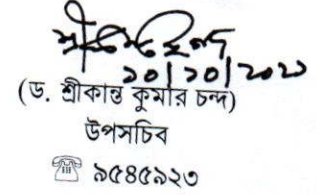 ১০/১০/২০২১
(ড. শ্রীকান্ত কুমার চন্দ)
উপসচিব
☎ ৯৫৪৫৯২৩